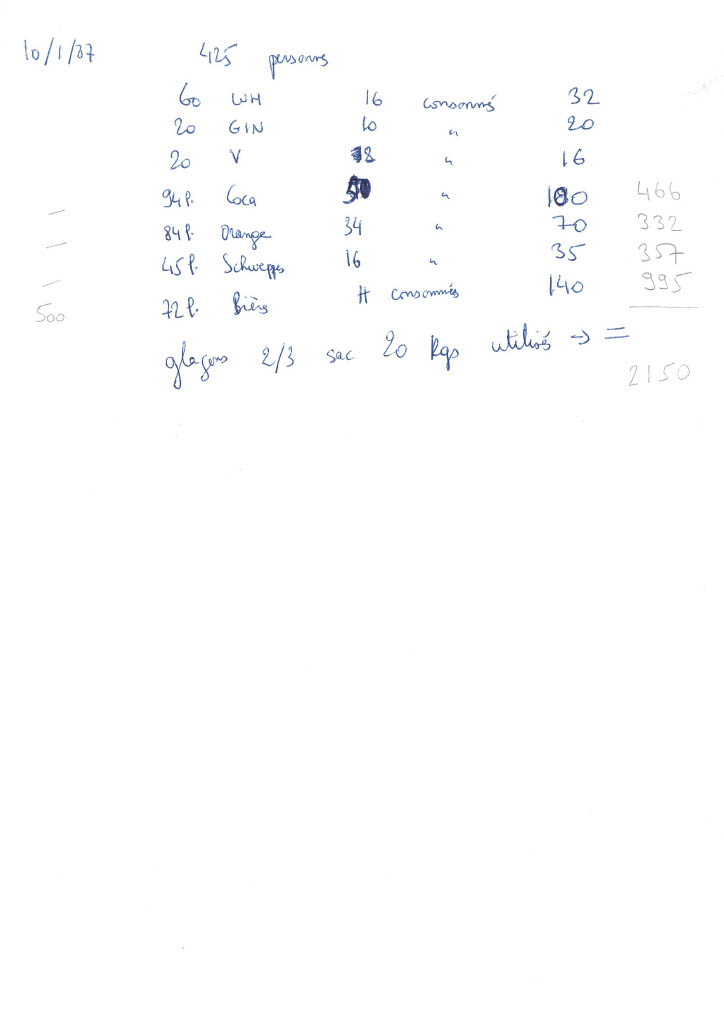 10/1/07 425 personnes
60 WH 16 consommés 32
20 GIN 10 " 20
20 V 8 " 16
94 l. Coca 50 " 100 466
84 l. Orange 34 " 70 332
45 l. Schwepps 16 " 35 357
72 l. Bière H consommés 140 995
500
glaçons 2/3 sac 20 Kgs utilisés → =
2150